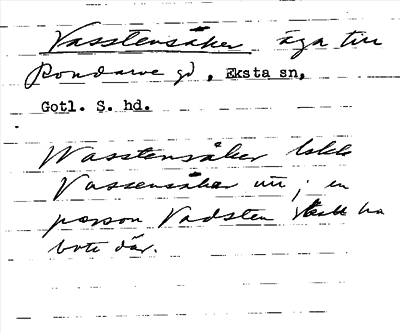 Vasstensåker äga till
Rondarve gd, Eksta sn,
Gotl. S. hd.
Wasstensåker
Vassensåker ; en
person Vadsten skall ha
bott där.